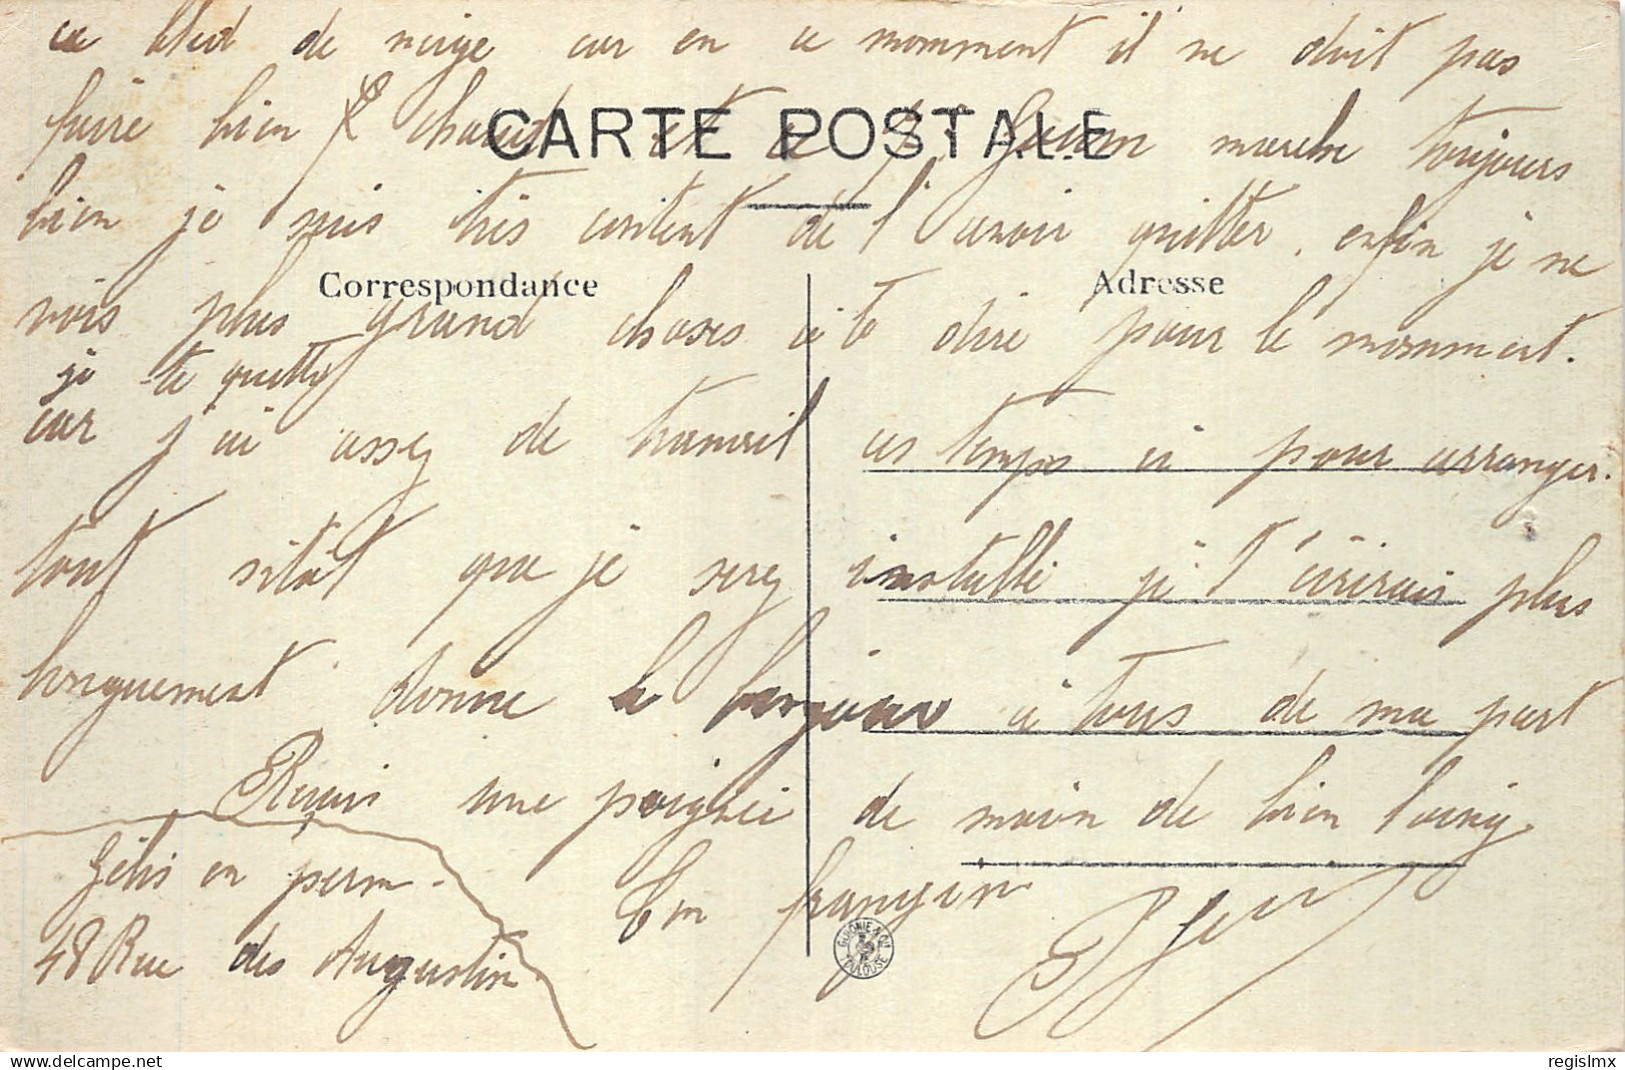 ce bled de neige car en ce momment il ne doit pas
faire bien chaud et marche toujours
CARTE POSTALE
bien je suis très content de l'avoir quitter. enfin je ne
Correspondance
Adresse
vois plus grand choses à te dire pour le momment.
je te quitte
car j'ai assez de travail ces temps ci pour arranger.
tout sitôt que je serez installé je t'écrirais plus
longuement donne le bonjour à tous de ma part
Reçois une poignée de main de bien loing
Gélis en perm.
Ton françin
48 Rue des Augustin
GUIONIE & Cie TOULOUSE
regislmx